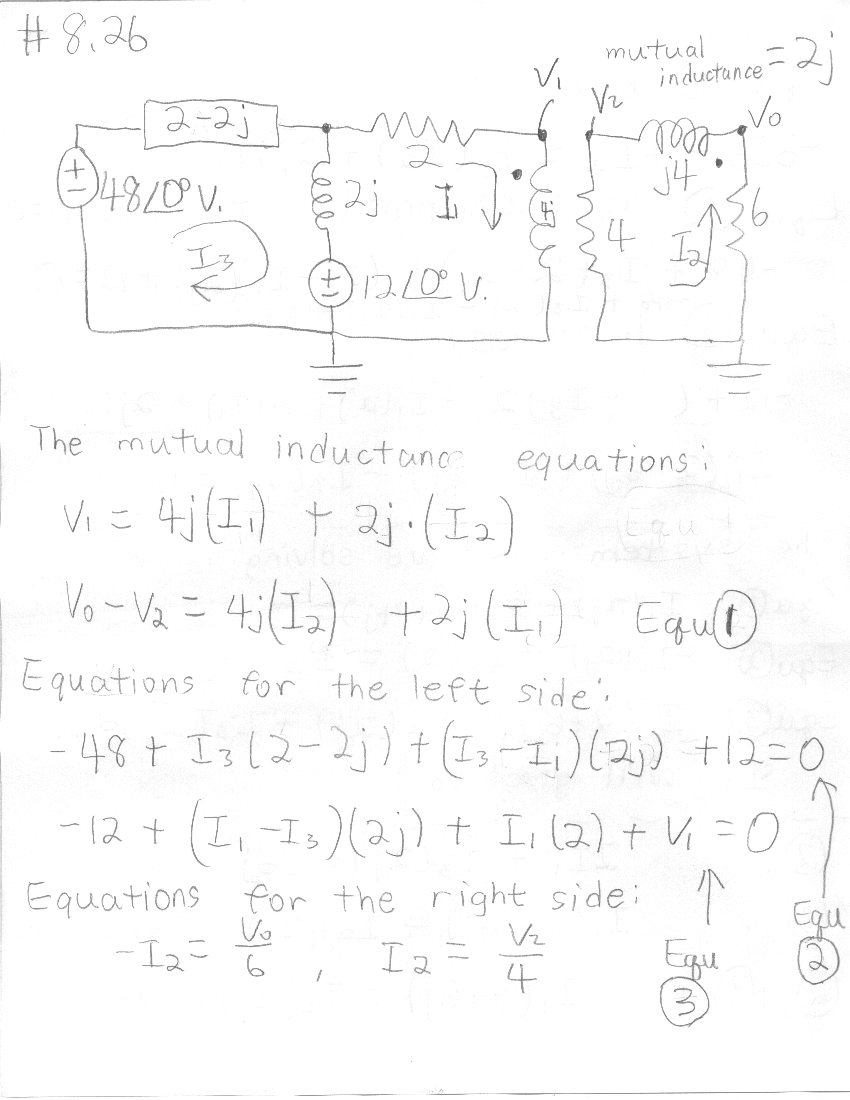 # 8.26
mutual inductance = 2j
V₁
V₂
V₀
2-2j
2
j4
48∠0° V.
2j
I₁
4j
4
I₂
6
I₃
12∠0° V.
The mutual inductance equations:
V₁ = 4j(I₁) + 2j·(I₂)
V₀-V₂ = 4j(I₂) + 2j(I₁) Equ ①
Equations for the left side:
-48 + I₃(2-2j) + (I₃-I₁)(2j) +12=0
-12 + (I₁-I₃)(2j) + I₁(2) + V₁ = 0
Equations for the right side:
-I₂ = V₀/6 , I₂ = V₂/4
Equ ③
Equ ②